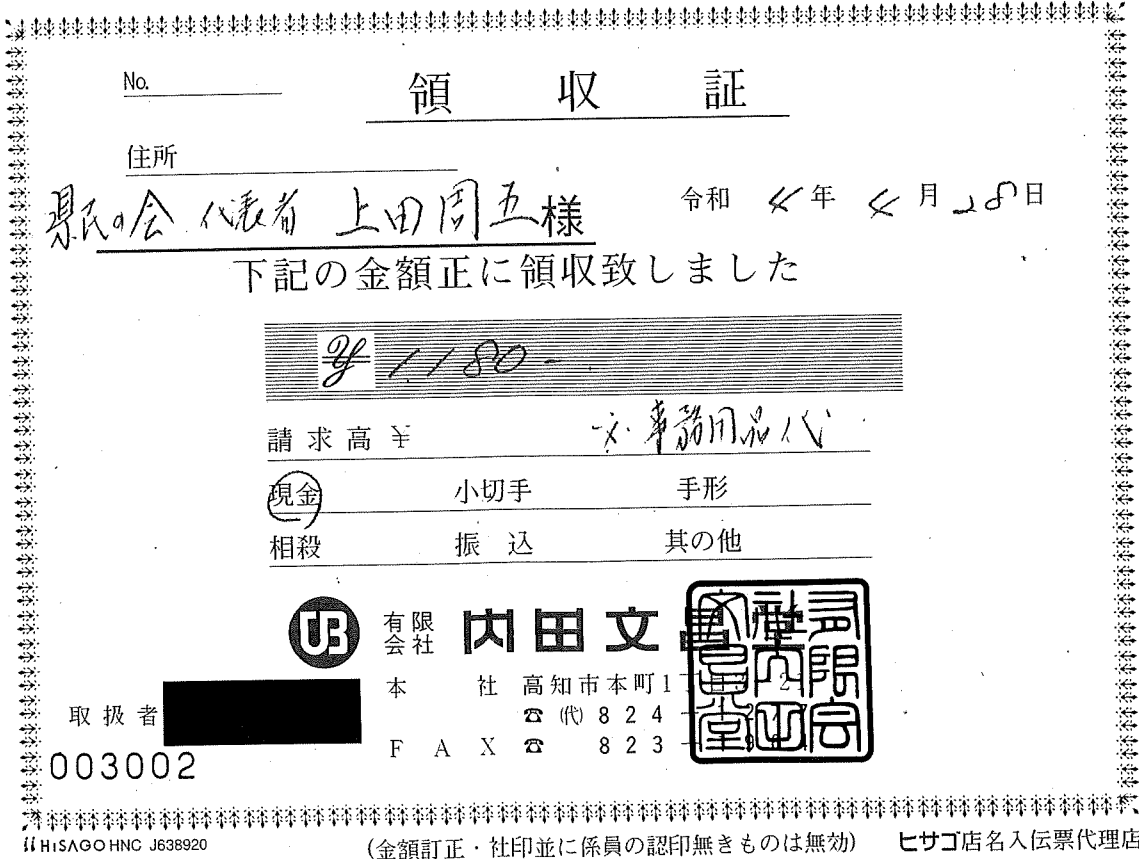 No.
領収証
住所
県民の会 代表者 上田周五様
令和 4年 4月 28日
下記の金額正に領収致しました
¥ 1,180-
請求高 ¥ 文・事務用品代
現金 小切手 手形
相殺 振込 其の他
UB 有限会社 内田文昌堂
本社 高知市本町1
取扱者 ☎ (代) 824
FAX ☎ 823
有限会社内田文昌堂
003002
HISAGO HNC J638920 (金額訂正・社印並に係員の認印無きものは無効) ヒサゴ店名入伝票代理店